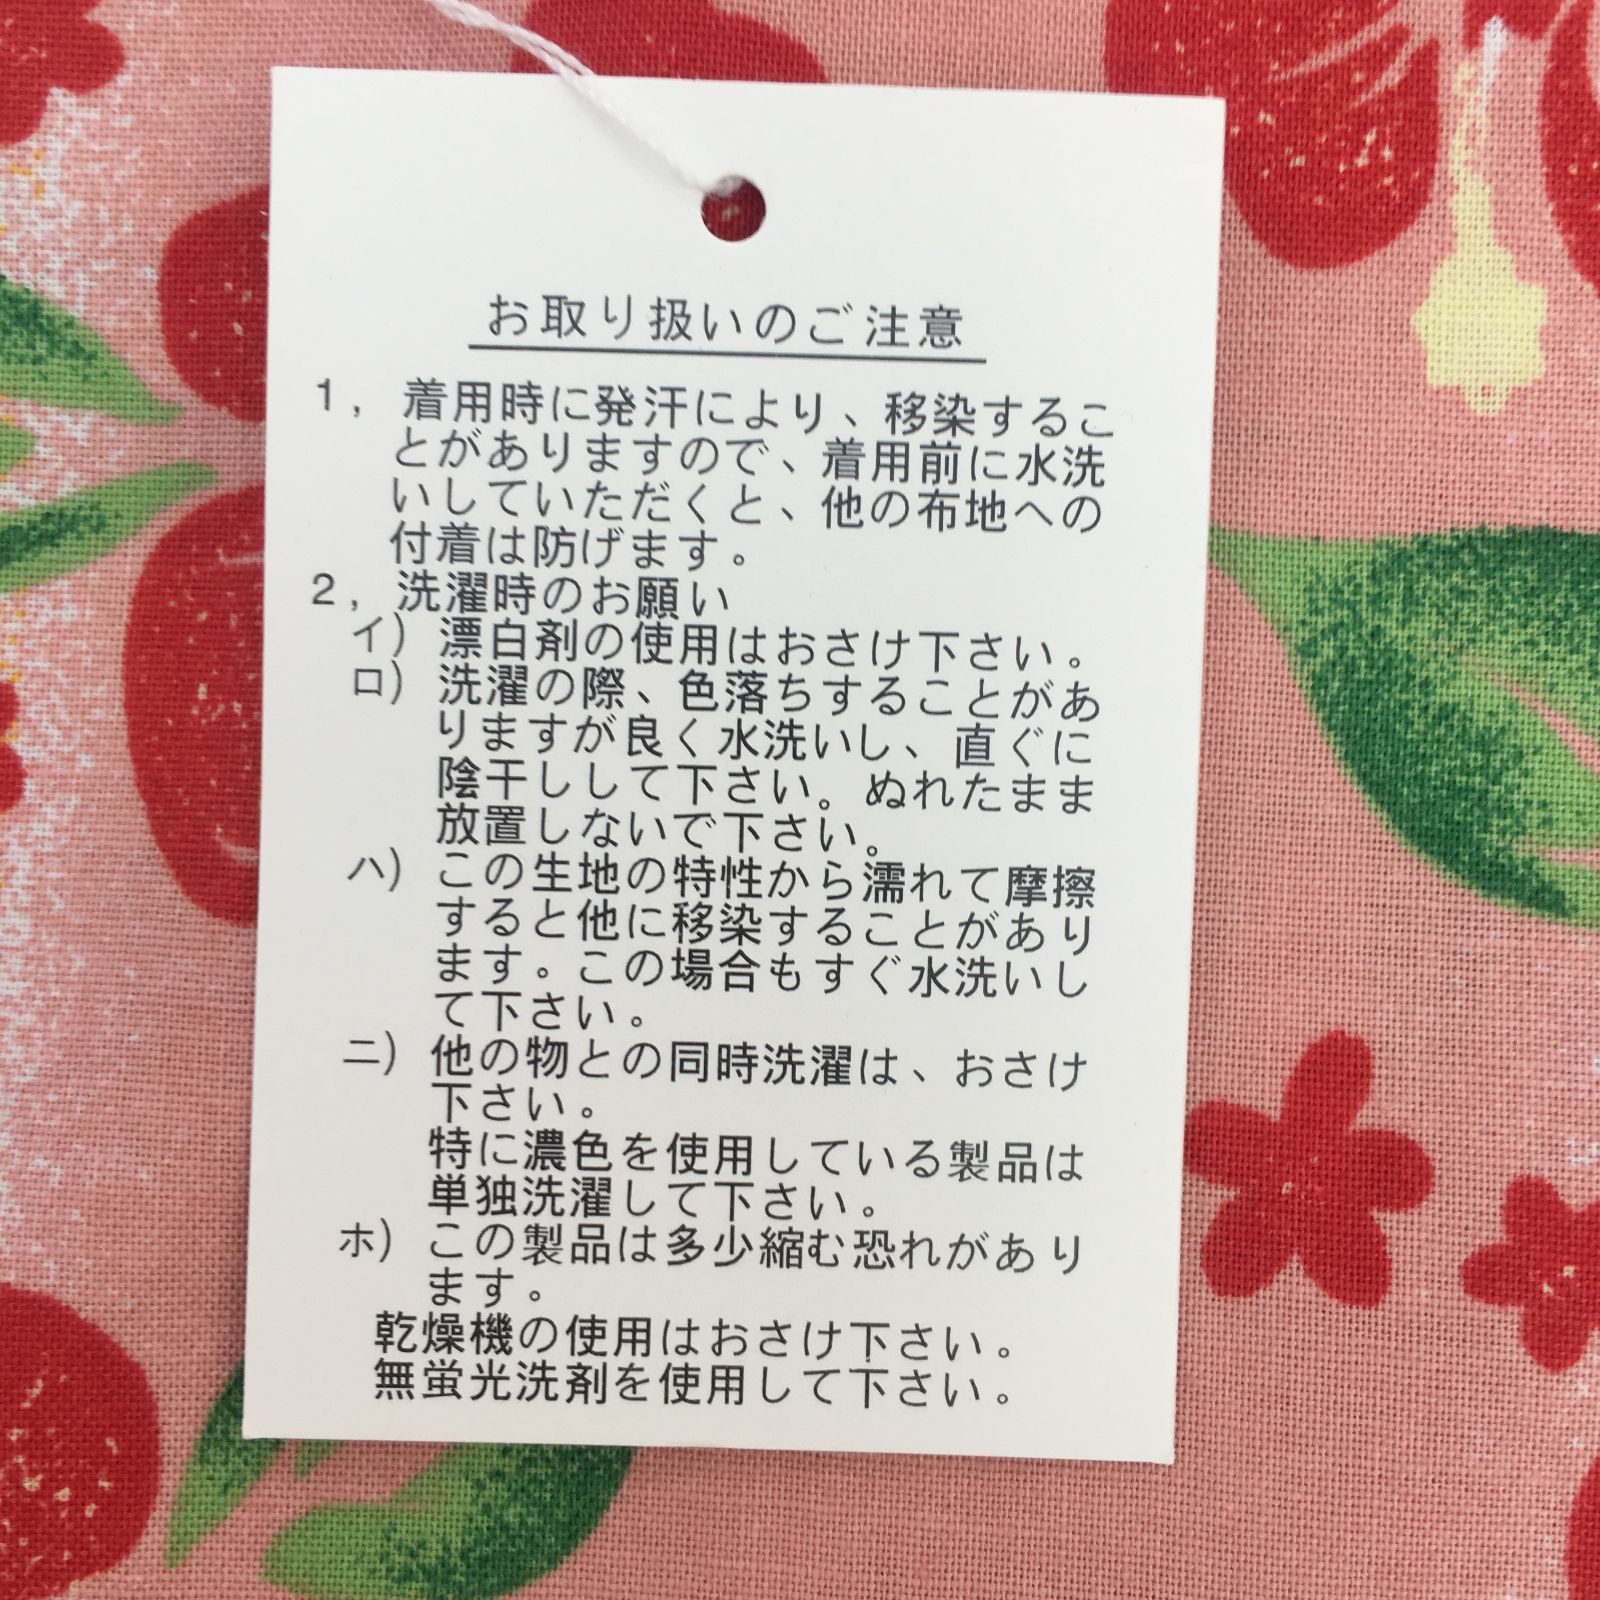 お取り扱いのご注意
1，着用時に発汗により、移染するこ
とがありますので、着用前に水洗
いしていただくと、他の布地への
付着は防げます。
2，洗濯時のお願い
イ）漂白剤の使用はおさけ下さい。
ロ）洗濯の際、色落ちすることがあ
りますが良く水洗いし、直ぐに
陰干しして下さい。ぬれたまま
放置しないで下さい。
ハ）この生地の特性から濡れて摩擦
すると他に移染することがあり
ます。この場合もすぐ水洗いし
て下さい。
ニ）他の物との同時洗濯は、おさけ
下さい。
特に濃色を使用している製品は
単独洗濯して下さい。
ホ）この製品は多少縮む恐れがあり
ます。
乾燥機の使用はおさけ下さい。
無蛍光洗剤を使用して下さい。